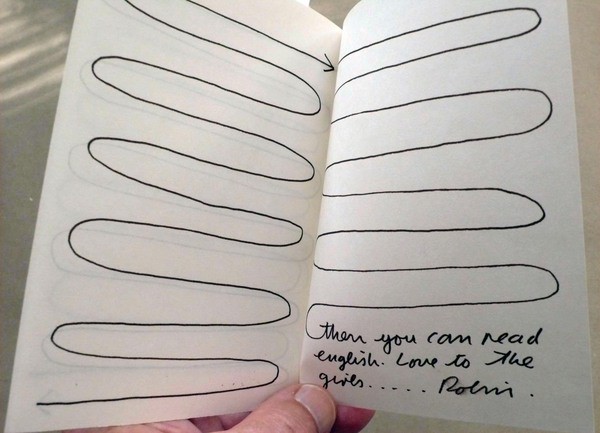 then you can read
english. Love to the
girls..... Robin.